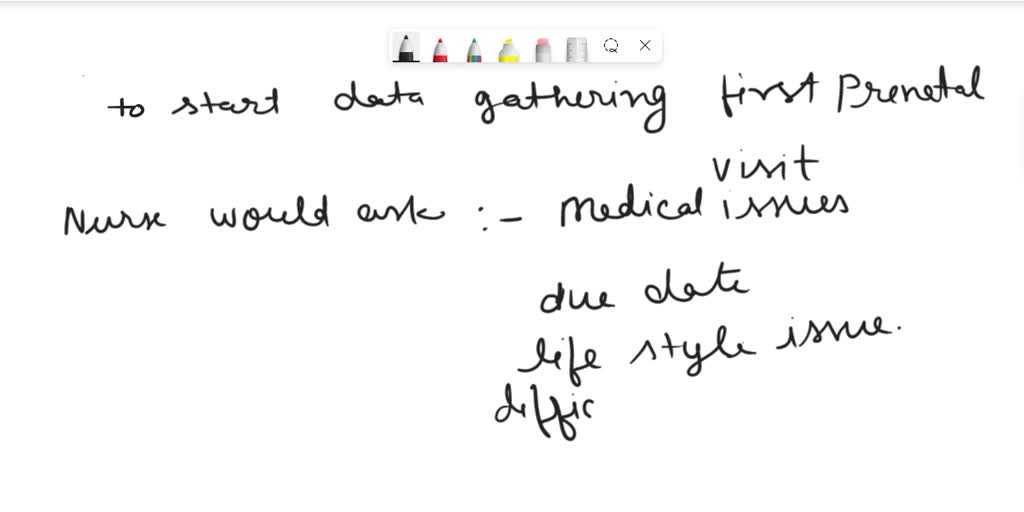 to start data gathering first Prenatal
visit
Nurse would ask :- medical issues
due date
life style issue.
diffic